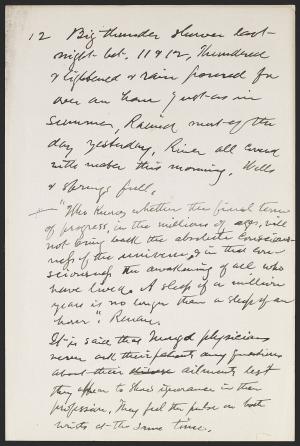 12 Big thunder shower last
night bet. 11 & 12, Thundered
& lightened & rain poured for
over an hour just as in
summer, Rained most of the
day yesterday, River all
with water this morning, Wells
& springs full.
— "Who knows whether the final term
of progress, in the millions of ages, will
not bring back the absolute conscious-
ness of the universe, & in that con-
sciousness the awakening of all who
have lived. A sleep of a million
years is no longer than a sleep of an
hour". Renan.
It is said that physicians
never ask their patients any questions
about their ailments lest
they appear to show ignorance in their
profession. They feel the pulse on both
wrists at the same time.